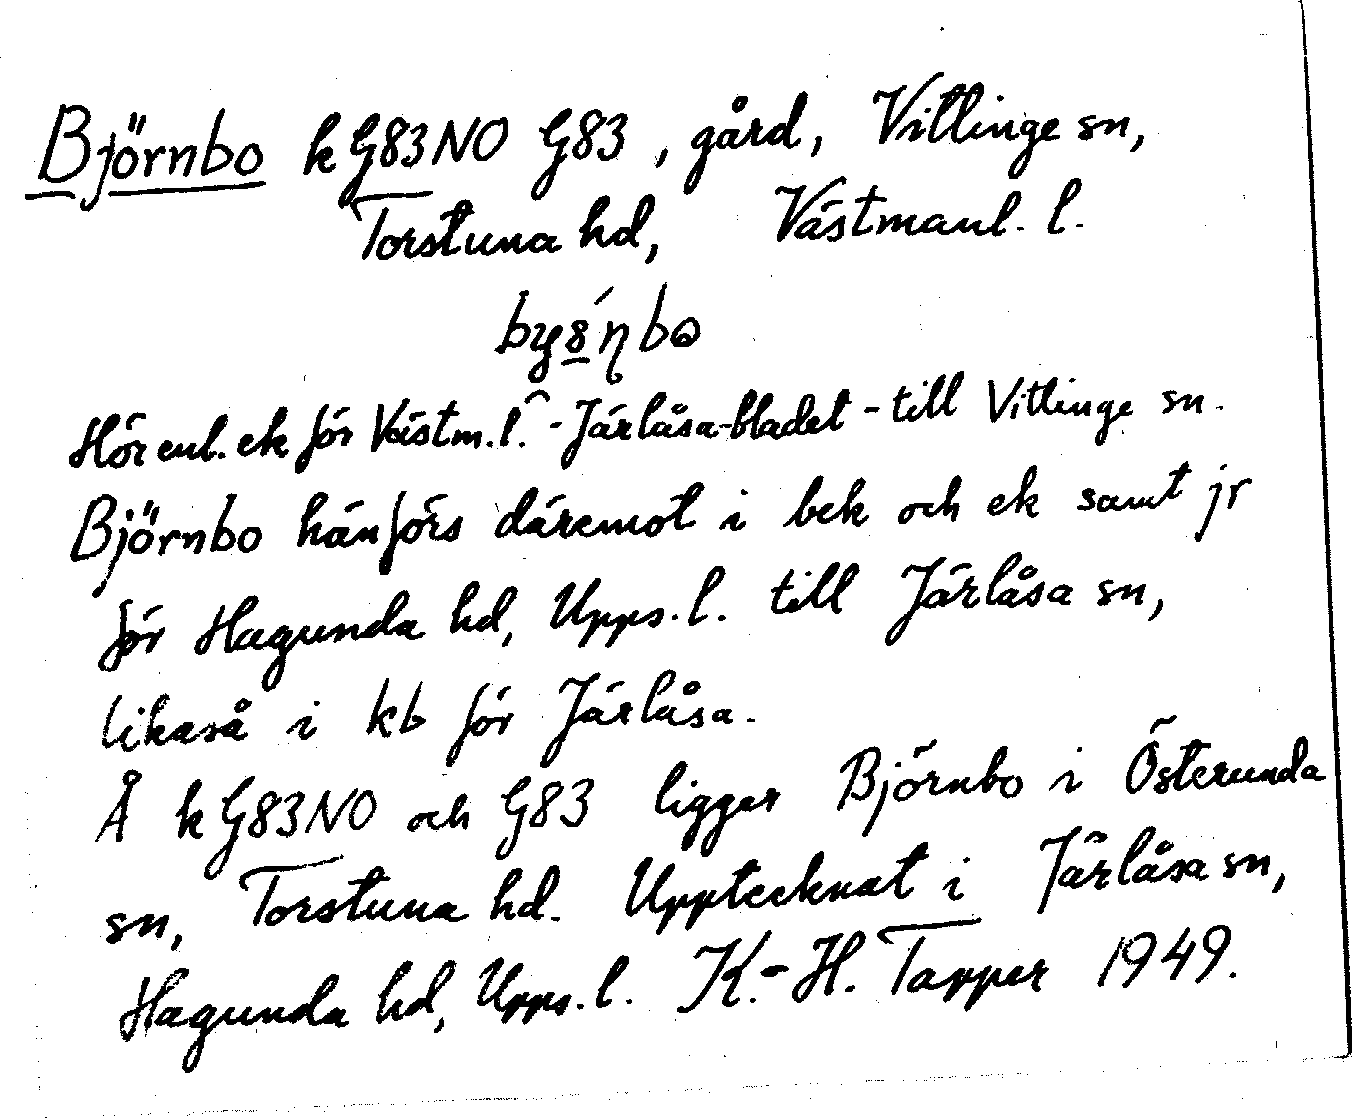 Björnbo k G83NO G83, gård, Vittinge sn,
Torstuna hd, Västmanl. l.
Hör enl. ek för Västm. l. - Järlåsa-bladet - till Vittinge sn.
Björnbo hänförs däremot i bek och ek samt jr
för Hagunda hd, Upps. l. till Järlåsa sn,
likaså i kb för Järlåsa.
Å k G83NO och G83 ligger Björnbo i Österunda
sn, Torstuna hd. Upptecknat i Järlåsa sn,
Hagunda hd, Upps. l. K.-H. Tapper 1949.